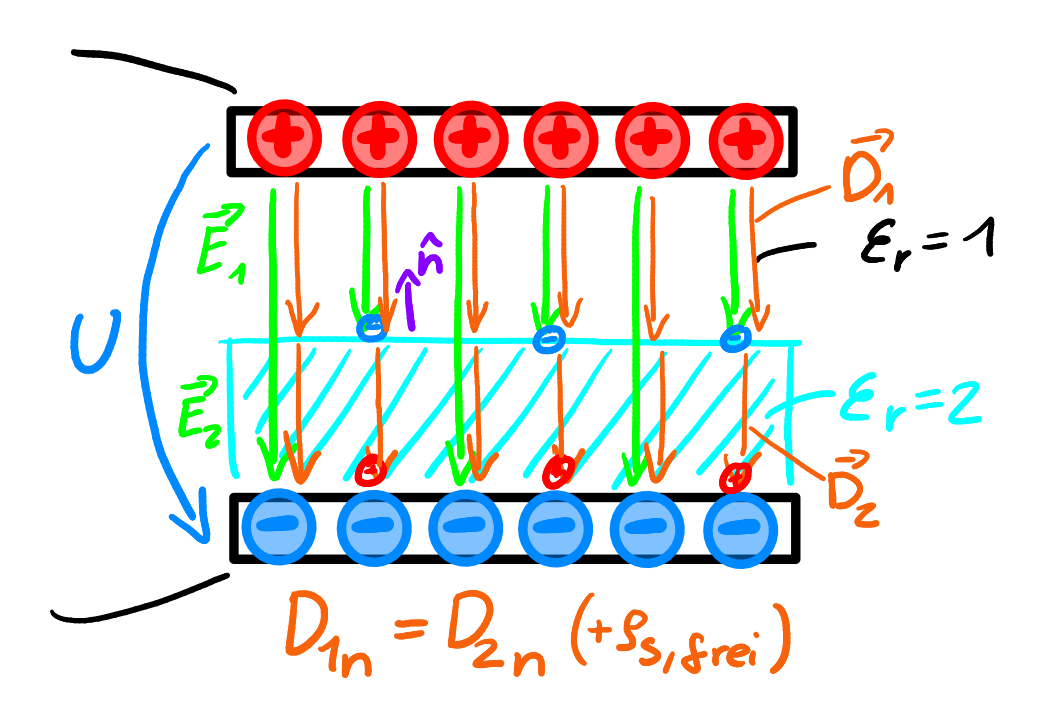 + + + + + +
D⃗₁
E⃗₁
n̂
εᵣ = 1
U
- - -
E⃗₂
εᵣ = 2
+ + +
D⃗₂
- - - - - -
D₁ₙ = D₂ₙ (+ρₛ,frei)